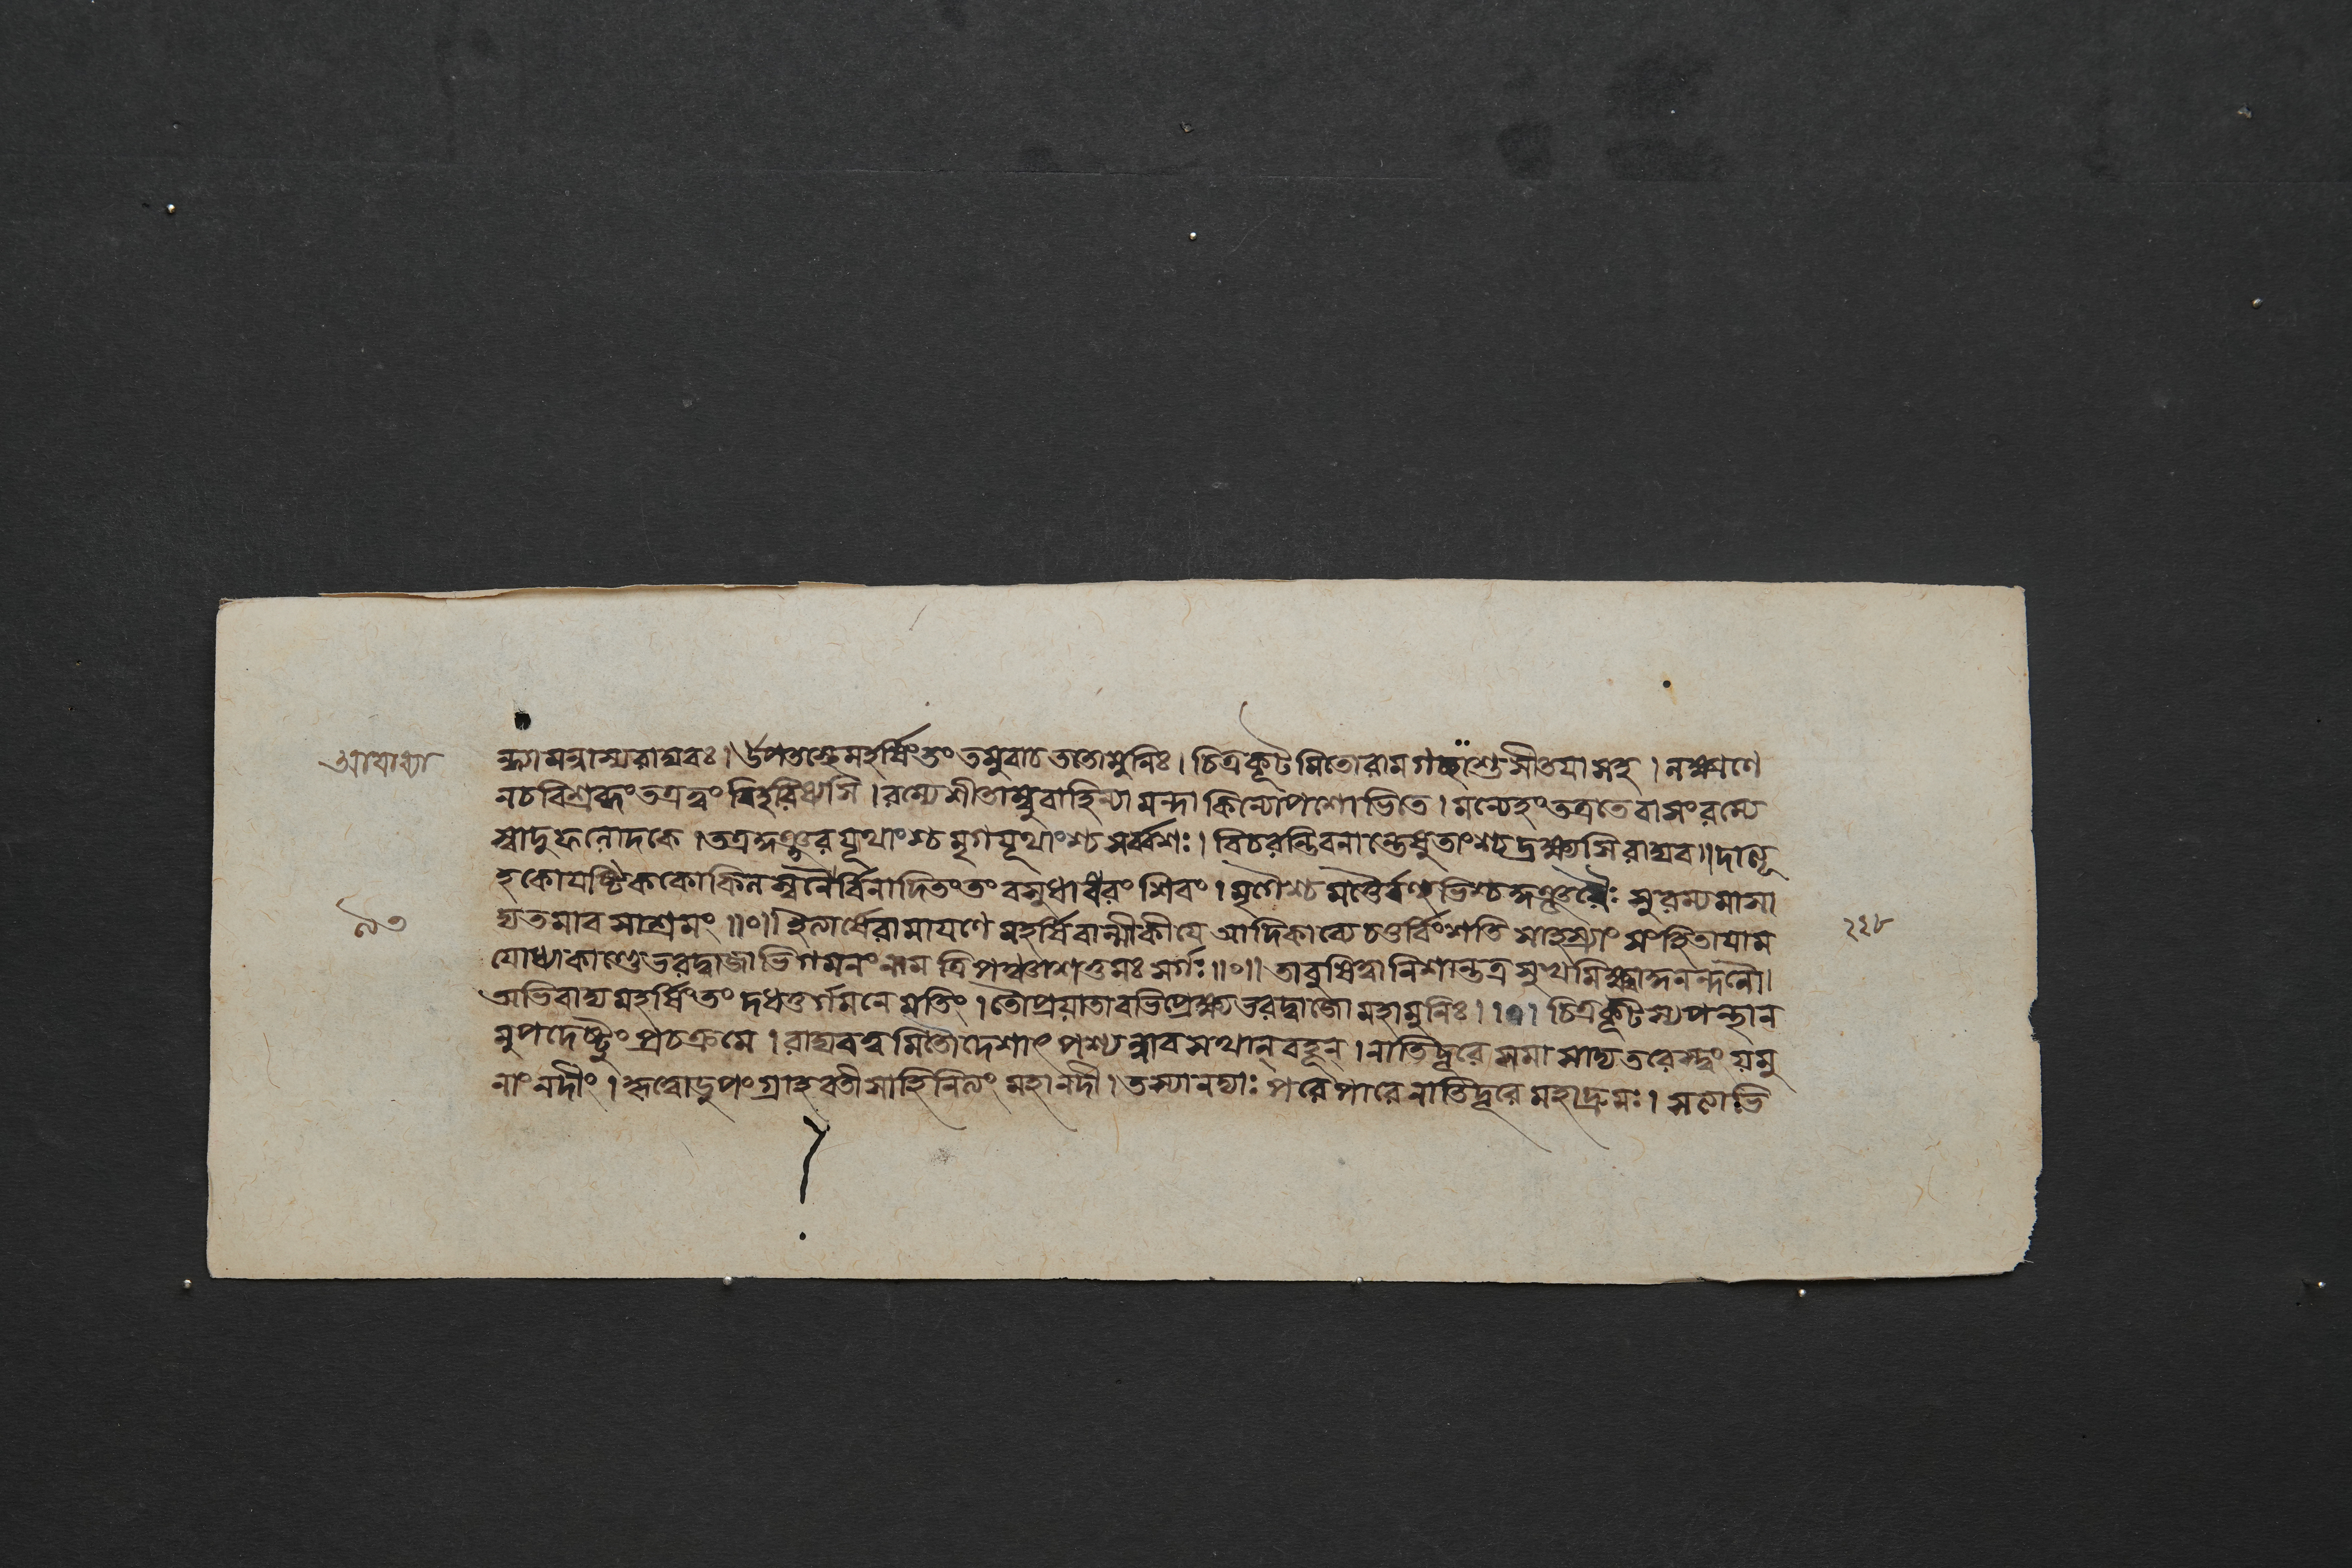 আবাল্মী
ন্ধ্যামন্বাস্যরাঘবঃ। উপতস্থেমহর্ষিংতং তমুবাচ ততোমুনিঃ। চিত্রকূটমিতোরামগচ্ছাশুসীতয়াসহ। লক্ষ্মণে
নচবিশ্রব্ধং তত্রত্বং বিহরিষ্যসি। রম্যেশীতাম্বুবাহিন্যা মন্দাকিন্যোপশোভিতে। মন্যেহং তত্রতে বাসং রম্যে
স্বাদুফলোদকে। তত্রকুঞ্জরযূথাংশ্চ মৃগযূথাংশ্চ সর্ব্বশঃ। বিচরন্তিবনান্তেষুতাংশ্চ দ্রক্ষ্যসি রাঘব॥ দাত্যূ
হকোযষ্টিককোকিলস্বনৈর্বিনাদিতং তং বসুধাধরং শিবং। মৃগৈশ্চ মত্তৈর্বহুভিশ্চ কুঞ্জরৈঃ সুরম্যমাসা
দ্যতমাবসাশ্রমং॥০॥ ইত্যার্ষেরামায়ণে মহর্ষিবাল্মীকীয়ে আদিকাব্যে চতুর্বিংশতি সাহস্র্যাং সংহিতায়াম
যোধ্যাকাণ্ডে ভরদ্বাজাভিগমনং নাম ত্রিপঞ্চাশত্তমঃ সর্গঃ॥০॥ তাবুষিত্বা নিশান্তত্র সুখমিক্ষ্বাকুনন্দনৌ।
অভিবাদ্যমহর্ষিংতং দধতুর্গমনে মতিং। তৌপ্রয়াতাবভিপ্রেক্ষ্যভরদ্বাজো মহামুনিঃ।।১। চিত্রকূটস্যপন্থান
মুপদেষ্টুং প্রচক্রমে। রাঘবত্বমিতোদেশাৎ পশ্যন্নাবসথান্ বহূন্। নাতিদূরে সমাসাদ্যতরেস্ত্বং যমু
নাং নদীং। কৃত্বোড়ুপং গ্রাহবতীসাহিনিত্যং মহানদী। তস্যানদ্যাঃ পরেপারেনাতিদূরে মহাদ্রুমঃ। সত্যাভি
৯৩
२२८